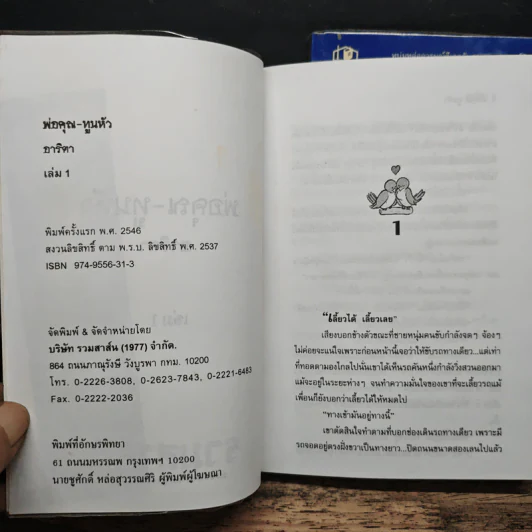 พ่อคุณ-ทูนหัว
อาริตา
เล่ม 1
พิมพ์ครั้งแรก พ.ศ. 2546
สงวนลิขสิทธิ์ ตาม พ.ร.บ. ลิขสิทธิ์ พ.ศ. 2537
ISBN 974-9556-31-3
จัดพิมพ์ & จัดจำหน่ายโดย
บริษัท รวมสาส์น (1977) จำกัด.
864 ถนนภาณุรังษี วังบูรพา กทม. 10200
โทร. 0-2226-3808, 0-2623-7843, 0-2221-6483
Fax. 0-2222-2036
พิมพ์ที่อักษรพิทยา
61 ถนนมหรรณพ กรุงเทพฯ 10200
นายชูศักดิ์ หล่อสุวรรณศิริ ผู้พิมพ์ผู้โฆษณา
1
"เลี้ยวได้ เลี้ยวเลย"
เสียงบอกข้างตัวขณะที่ชายหนุ่มคนขับกำลังจดๆ จ้องๆ
ไม่ค่อยจะแน่ใจเพราะก่อนหน้านี้เจอว่าให้ขับรถทางเดียว...แต่เท่า
ที่ทอดตามองไกลไปนั่นเขาได้เห็นรถคันหนึ่งกำลังวิ่งสวนออกมา
แม้จะอยู่ในระยะห่างๆ จนทำความมั่นใจของเขาที่จะเลี้ยวรถแม้
เพื่อนก็ยังบอกว่าเลี้ยวได้ให้หมดไป
"ทางเข้ามันอยู่ทางนี้"
เขาตัดสินใจทำตามที่บอกช่องเดินรถทางเดียว เพราะมี
รถจอดอยู่ตรงฝั่งขวาเป็นทางยาว...ปิดถนนขนาดสองเลนไปแล้ว